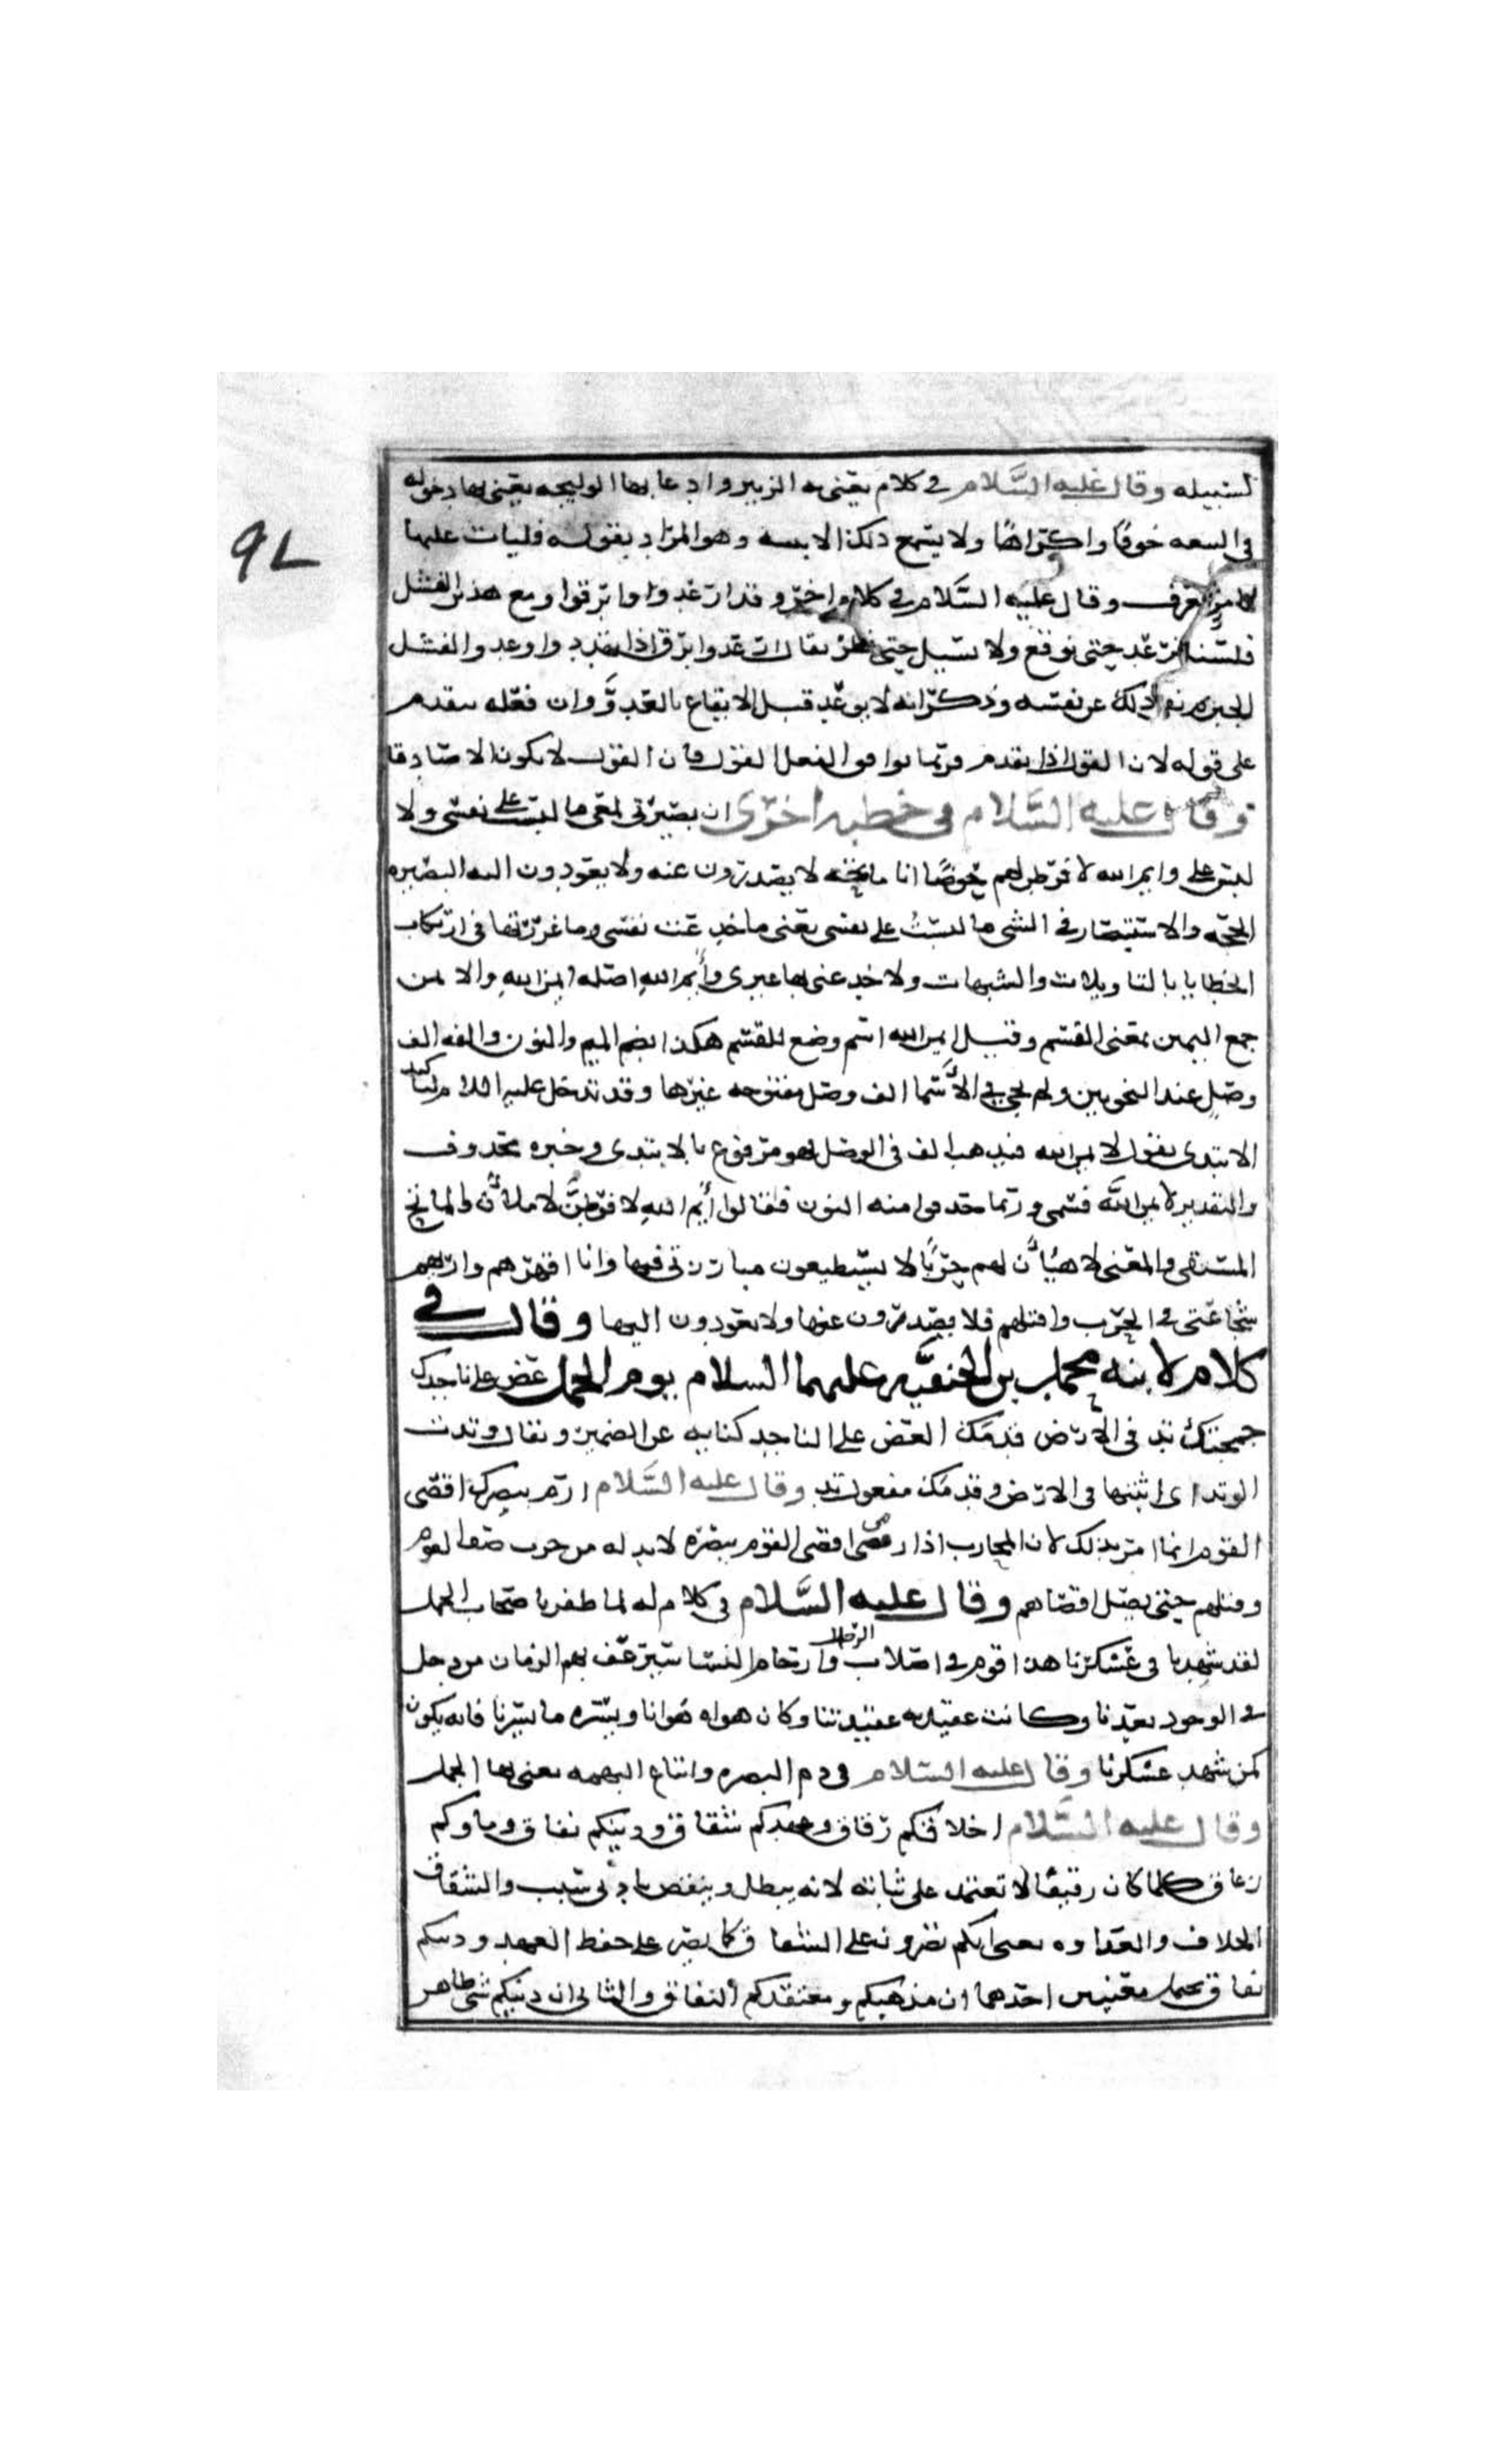 لسبيله وقال عليه السَّلام في كلام يعني به الزبير وادعا بها الوليجه يعني بها دخوله
في البيعه خوفًا واكراهًا ولا يسمع ذلك الا ببينه وهو المراد بقوله فليات عليها
بامر يعرف وقال عليه السَّلام في كلام اخر وقد ارعدوا وابرقوا ومع هذين الفشل
فلسنا نرعد حتى نوقع ولا نسيل حتى نمطر يقال ارعدوا برق اذا تهدد واوعد والفشل
الجبن نفى ذلك عن نفسه وذكر انه لا يوعد قبل الايقاع بالعدوّ وان فعله يتقدم
على قوله لان القول اذا تقدم فربما يوافق الفعل القول فان القول لا يكون الا صادقا
وقال عليه السَّلام في خطبه اخرى ان بصيرتى لمعى ما لبست على نفسى ولا
لبس على وايم الله لافرطن لهم حوضًا انا ماتحه لا يصدرون عنه ولا يعودون اليه البصيره
الحجه والاستبصار في الشى ما لبستُ على نفسى يعنى ما خدعت نفسى وما غررتها في ارتكاب
الخطايا بالتاويلات والشبهات ولا خدعنى بها غيرى وأيم اللهِ اصله ايمن اللهِ والايمن
جمع اليمين بمعنى القسم وقيل ايمن الله اسم وضع للقسم هكذا بضم الميم والنون والفه الف
وصلٍ عند النحويين ولم يجى في الأَسما الف وصل مفتوحه غيرها وقد تدخل عليه اللام لتاكيد
الابتدى يقول لايمن الله فيذهب الف في الوصل وهو مرفوع بالابتدى وخبره محذوف
والتقدير لايمن اللَّه قسمى وربما حذفوا منه النون فقالوا أَيم اللهِ لافرطنَّ لاملأَن والماتح
المستقى والمعنى لاهيّأَن لهم حربًا لا يستطيعون مبارزتى فيها وانا اقهرهم واريهم
شجاعتى في الحرب واقتلهم فلا يصدرون عنها ولا يعودون اليها وقال في
كلام لابنه محمد بن الحنفيَّه عليهما السلام يوم الجمل عض على ناجدك
جمجمتك تد في الارض قدمك العض على الناجد كنايه عن الضمير ويقال وتدت
الوتد اى اثبتها في الارض وقدمك مفعول تد وقال عليه السَّلام ارم ببصرك اقصى
القوم انما امر بذلك لان المحارب اذا رمى اقصى القوم ببصره لابد له من حرب
وقتلهم حتى يصل اقصاهم وقال عليه السَّلام في كلام له لما ظفر باصحاب الجمل
لقد شهدنا في عسكرنا هذا قوم في اصلاب الرجال وارحام النسا سيرعف بهم الزمان من دخل
في الوجود بعدنا وكانت عقيدته عقيدتنا وكان هواه هوانا ويسّره ما يسّرنا فانه يكون
كمن شهد عسكرنا وقال عليه السلام في ذم البصره واتباع البهيمه يعنى بها الجمل
وقال عليه السَّلام اخلاقكم رقاق وعهدكم شقاق ودينكم نفاق وماوكم
زعاق كلما كان رقيقًا لا تعتمد على ثباته لانه يبطل وينقض بادنى سبب والشقاق
الخلاف والعداوه يعنى انكم تصرون على الشقاق كما يصر على حفظ العهد ودينكم
نفاق يحتمل معنيين احدهما ان مذهبكم ومعتقدكم النفاق والثانى ان دينكم شى ظاهر